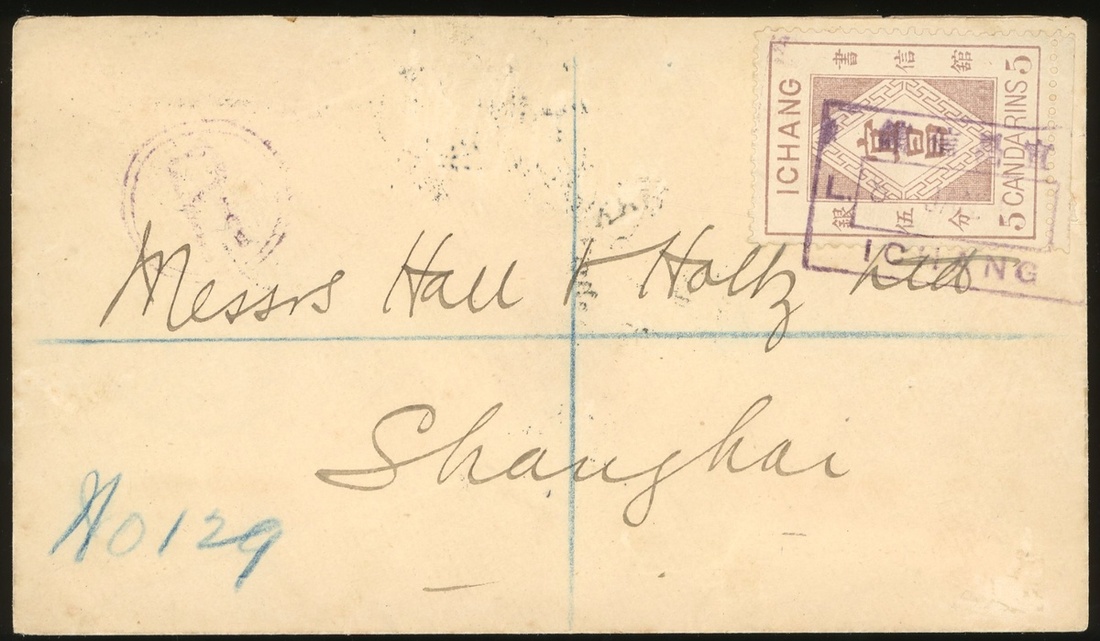 書信館
ICHANG
宜昌
5 CANDARINS 5
銀伍分
ICHANG
Messrs Hall & Holtz Ltd
Shanghai
No 129